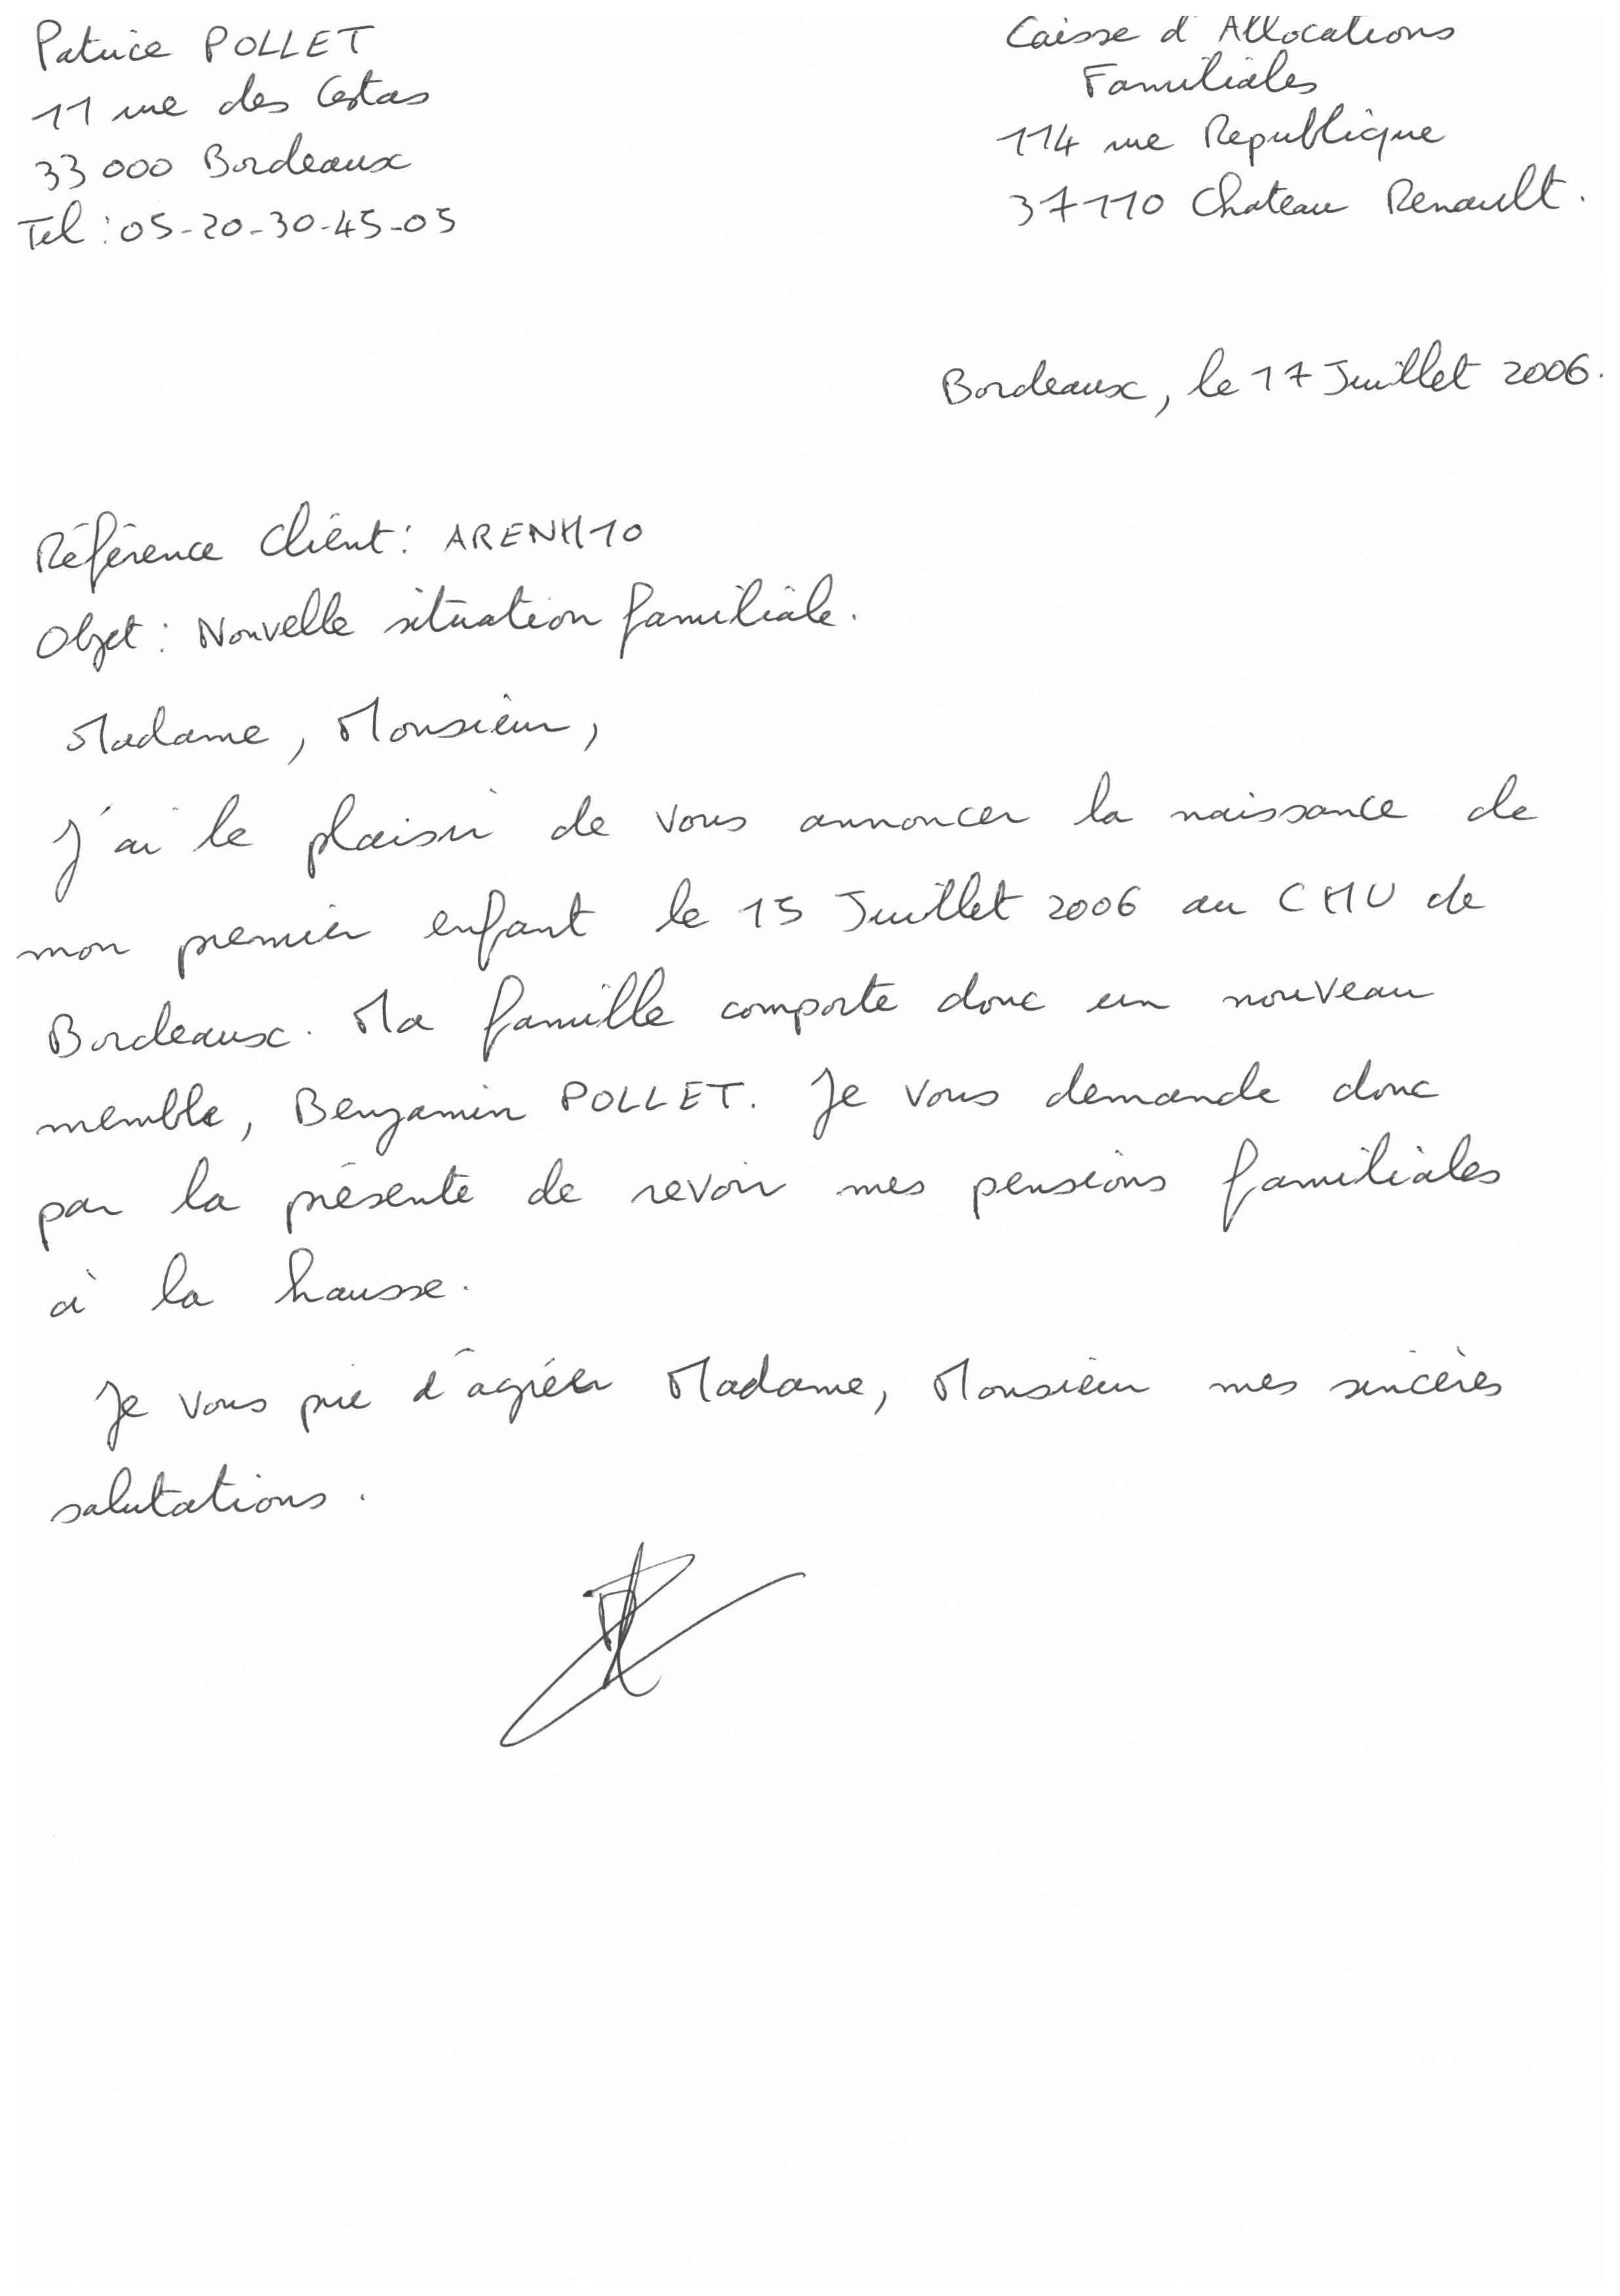 Patrice POLLET
11 rue des Cestas
33 000 Bordeaux
Tel : 05-20-30-45-05
Caisse d'Allocations
Familiales
114 rue Republique
37110 Chateau Renault.
Bordeaux, le 17 Juillet 2006.
Référence Client : ARENH10
Objet : Nouvelle situation familiale.
Madame, Monsieur,
J'ai le plaisir de vous annoncer la naissance de
mon premier enfant le 15 Juillet 2006 au CHU de
Bordeaux. Ma famille comporte donc un nouveau
memble, Benjamin POLLET. Je vous demande donc
par la présente de revoir mes pensions familiales
à la hausse.
Je vous prie d'agréer Madame, Monsieur mes sincères
salutations.